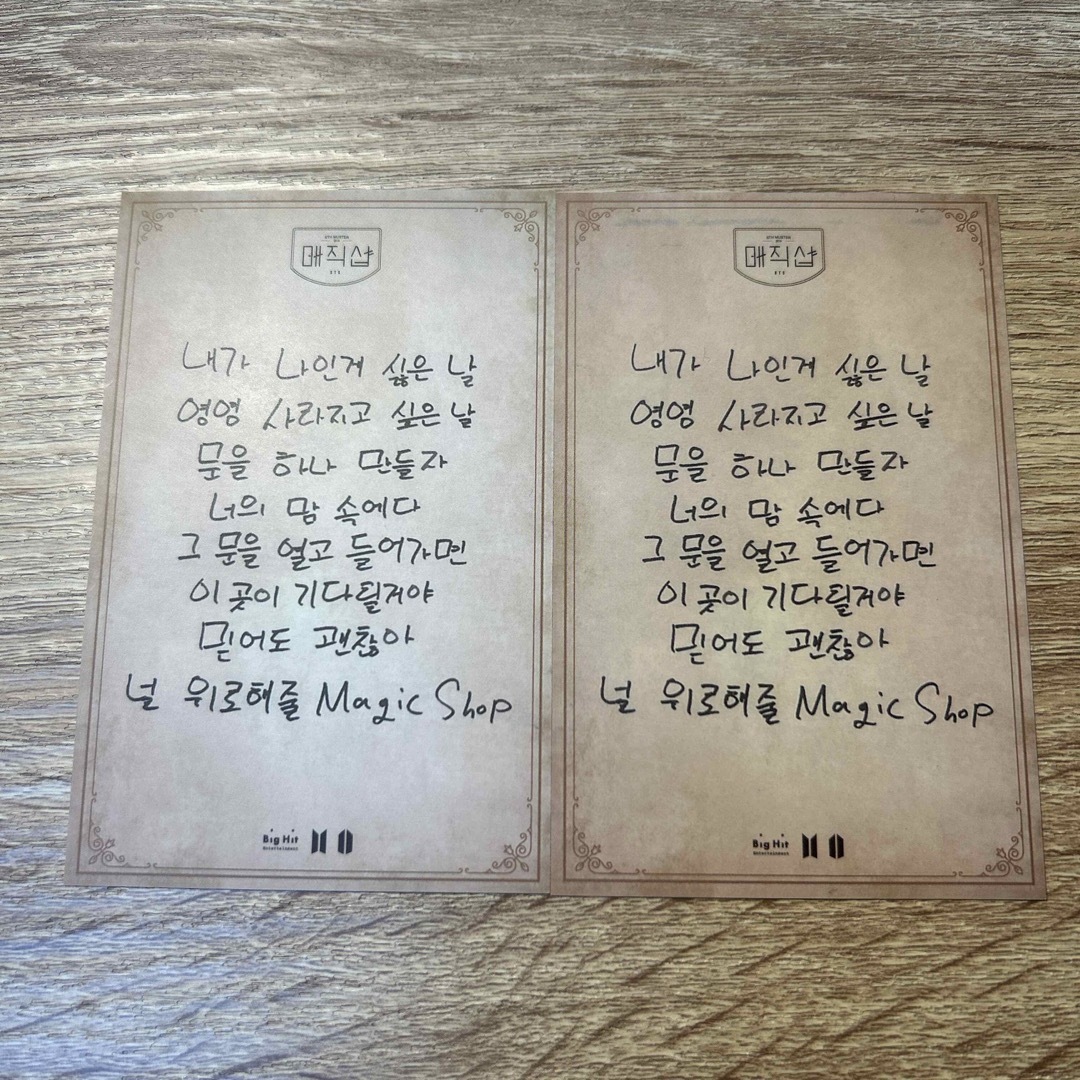 5TH MUSTER
BTS
매직샵
BTS
내가 나인게 싫은 날
영영 사라지고 싶은 날
문을 하나 만들자
너의 맘 속에다
그 문을 열고 들어가면
이 곳이 기다릴거야
믿어도 괜찮아
널 위로해줄 Magic Shop
Big Hit
Entertainment
5TH MUSTER
BTS
매직샵
BTS
내가 나인게 싫은 날
영영 사라지고 싶은 날
문을 하나 만들자
너의 맘 속에다
그 문을 열고 들어가면
이 곳이 기다릴거야
믿어도 괜찮아
널 위로해줄 Magic Shop
Big Hit
Entertainment